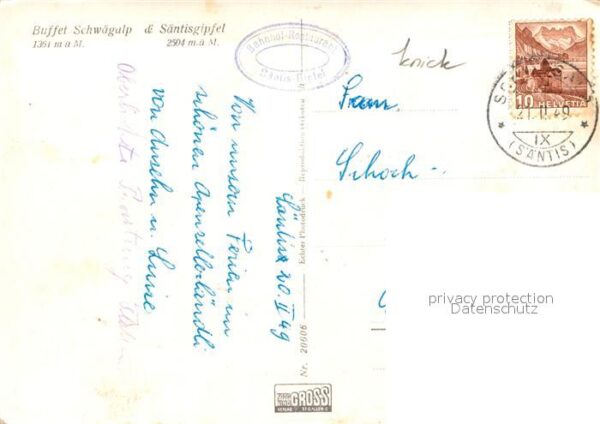 Buffet Schwägalp & Säntisgipfel
1361 m ü M. 2504 m. ü M.
Bahnhof-Restaurant
Säntis-Gipfel
knick
HELVETIA
10
21. II. 49
IX
(SÄNTIS)
Frau
Schoch -
Säntis 20. II 49
Von unsern Ferien im
schönen Apenzellerländli
von Anselm u. Luise
Echter Photodruck — Reproduktion verboten
Nr. 20606
GROSS
VERLAG ST. GALLEN
privacy protection
Datenschutz